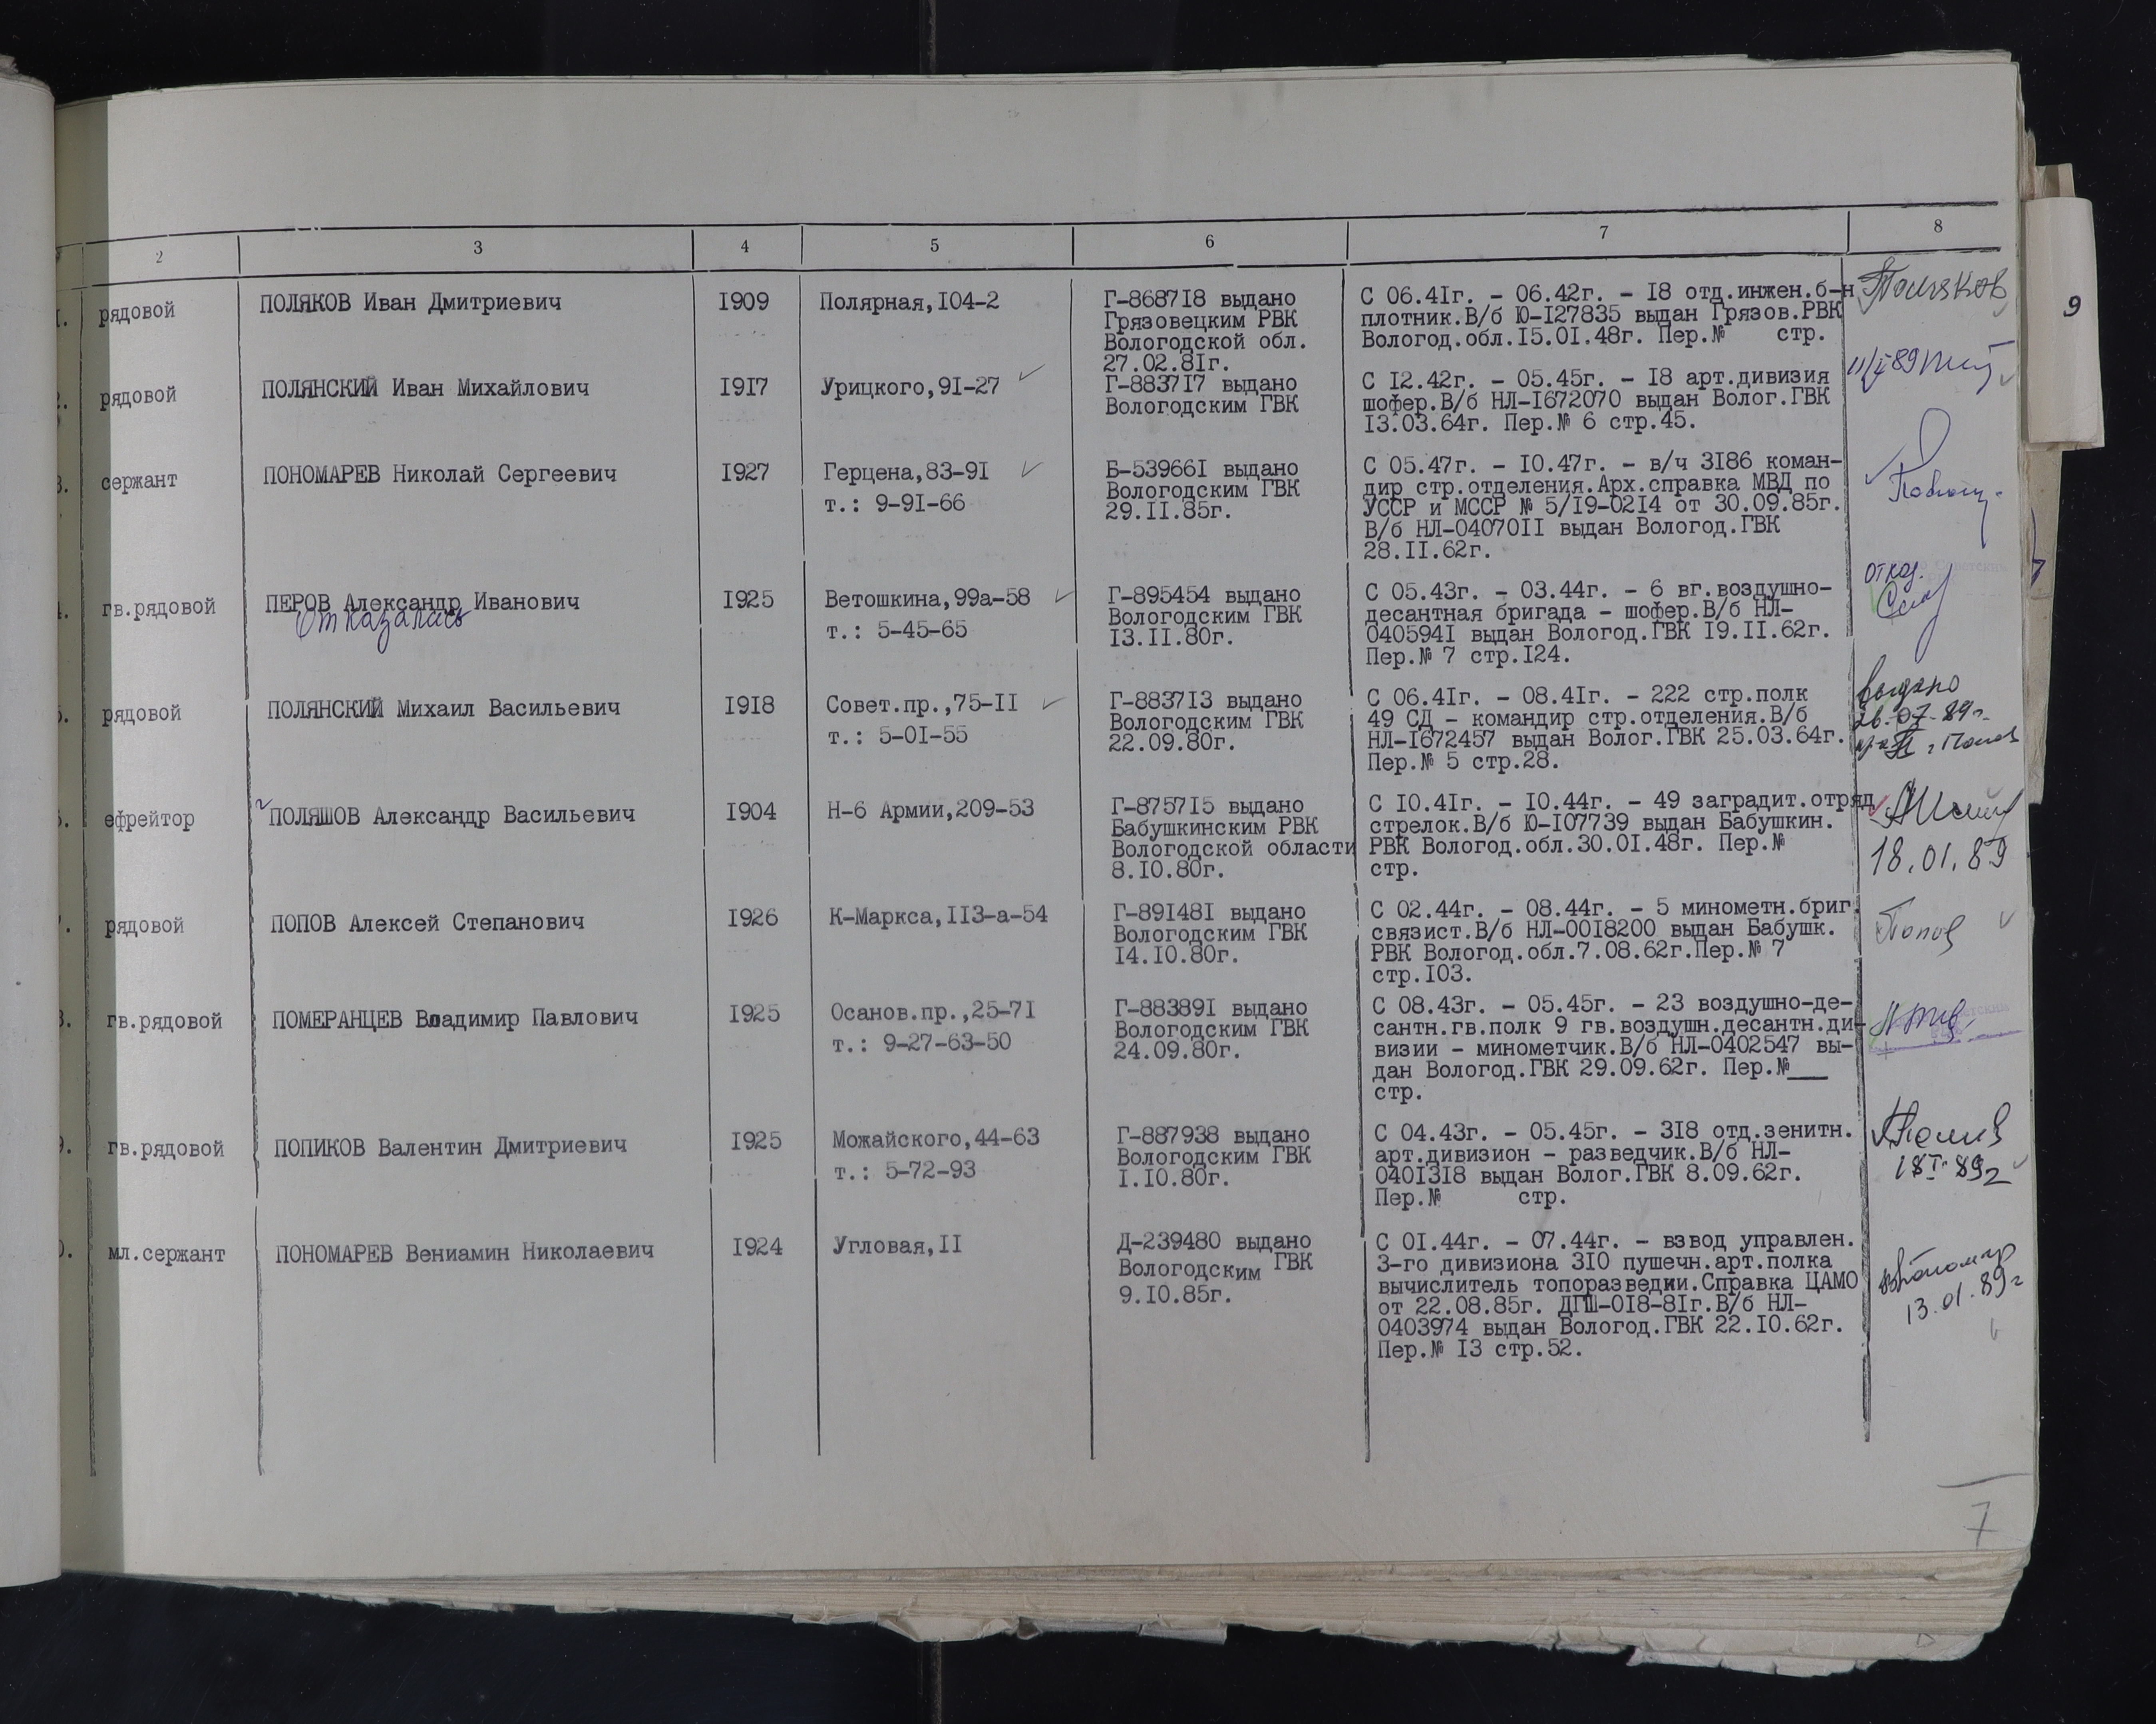 2 3 4 5 6 7 8
1. рядовой ПОЛЯКОВ Иван Дмитриевич 1909 Полярная,104-2
Г-868718 выдано
Грязовецким РВК
Вологодской обл.
27.02.81г.
С 06.41г. - 06.42г. - 18 отд.инжен.б-н
плотник.В/б Ю-127835 выдан Грязов.РВК
Вологод.обл.15.01.48г. Пер.№ стр.
Поляков
2. рядовой ПОЛЯНСКИЙ Иван Михайлович 1917 Урицкого,91-27
Г-883717 выдано
Вологодским ГВК
С 12.42г. - 05.45г. - 18 арт.дивизия
шофер.В/б НЛ-1672070 выдан Волог.ГВК
13.03.64г. Пер.№ 6 стр.45.
3. сержант ПОНОМАРЕВ Николай Сергеевич 1927 Герцена,83-91
т.: 9-91-66
Б-539661 выдано
Вологодским ГВК
29.11.85г.
С 05.47г. - 10.47г. - в/ч 3186 коман-
дир стр.отделения.Арх.справка МВД по
УССР и МССР № 5/19-0214 от 30.09.85г.
В/б НЛ-0407011 выдан Вологод.ГВК
28.11.62г.
4. гв.рядовой ПЕРОВ Александр Иванович 1925 Ветошкина,99а-58
отказалась
т.: 5-45-65
Г-895454 выдано
Вологодским ГВК
13.11.80г.
С 05.43г. - 03.44г. - 6 вг.воздушно-
десантная бригада - шофер.В/б НЛ-
0405941 выдан Вологод.ГВК 19.11.62г.
Пер.№ 7 стр.124.
отказ.
5. рядовой ПОЛЯНСКИЙ Михаил Васильевич 1918 Совет.пр.,75-11
т.: 5-01-55
Г-883713 выдано
Вологодским ГВК
22.09.80г.
С 06.41г. - 08.41г. - 222 стр.полк
49 СД - командир стр.отделения.В/б
НЛ-1672457 выдан Волог.ГВК 25.03.64г.
Пер.№ 5 стр.28.
Выдано
26.07.89г.
6. ефрейтор ПОЛЯШОВ Александр Васильевич 1904 Н-6 Армии,209-53
Г-875715 выдано
Бабушкинским РВК
Вологодской области
8.10.80г.
С 10.41г. - 10.44г. - 49 заградит.отряд
стрелок.В/б Ю-107739 выдан Бабушкин.
РВК Вологод.обл.30.01.48г. Пер.№
стр.
18.01.89
7. рядовой ПОПОВ Алексей Степанович 1926 К-Маркса,113-а-54
Г-891481 выдано
Вологодским ГВК
14.10.80г.
С 02.44г. - 08.44г. - 5 минометн.бриг.
связист.В/б НЛ-0018200 выдан Бабушк.
РВК Вологод.обл.7.08.62г.Пер.№ 7
стр.103.
Попов
8. гв.рядовой ПОМЕРАНЦЕВ Владимир Павлович 1925 Осанов.пр.,25-71
т.: 9-27-63-50
Г-883891 выдано
Вологодским ГВК
24.09.80г.
С 08.43г. - 05.45г. - 23 воздушно-де-
сантн.гв.полк 9 гв.воздушн.десантн.ди-
визии - минометчик.В/б НЛ-0402547 вы-
дан Вологод.ГВК 29.09.62г. Пер.№___
стр.
9. гв.рядовой ПОПИКОВ Валентин Дмитриевич 1925 Можайского,44-63
т.: 5-72-93
Г-887938 выдано
Вологодским ГВК
1.10.80г.
С 04.43г. - 05.45г. - 318 отд.зенитн.
арт.дивизион - разведчик.В/б НЛ-
0401318 выдан Волог.ГВК 8.09.62г.
Пер.№ стр.
18 I 89г
0. мл.сержант ПОНОМАРЕВ Вениамин Николаевич 1924 Угловая,11
Д-239480 выдано
Вологодским ГВК
9.10.85г.
С 01.44г. - 07.44г. - взвод управлен.
3-го дивизиона 310 пушечн.арт.полка
вычислитель топоразведки.Справка ЦАМО
от 22.08.85г. ДПШ-018-81г.В/б НЛ-
0403974 выдан Вологод.ГВК 22.10.62г.
Пер.№ 13 стр.52.
13.01.89г
7
9